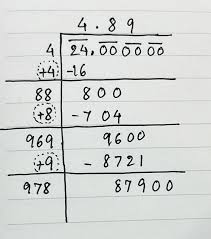 4.89
4 24.00 00 00
+4 -16
88 800
+8 -704
969 9600
+9 - 8721
978 87900